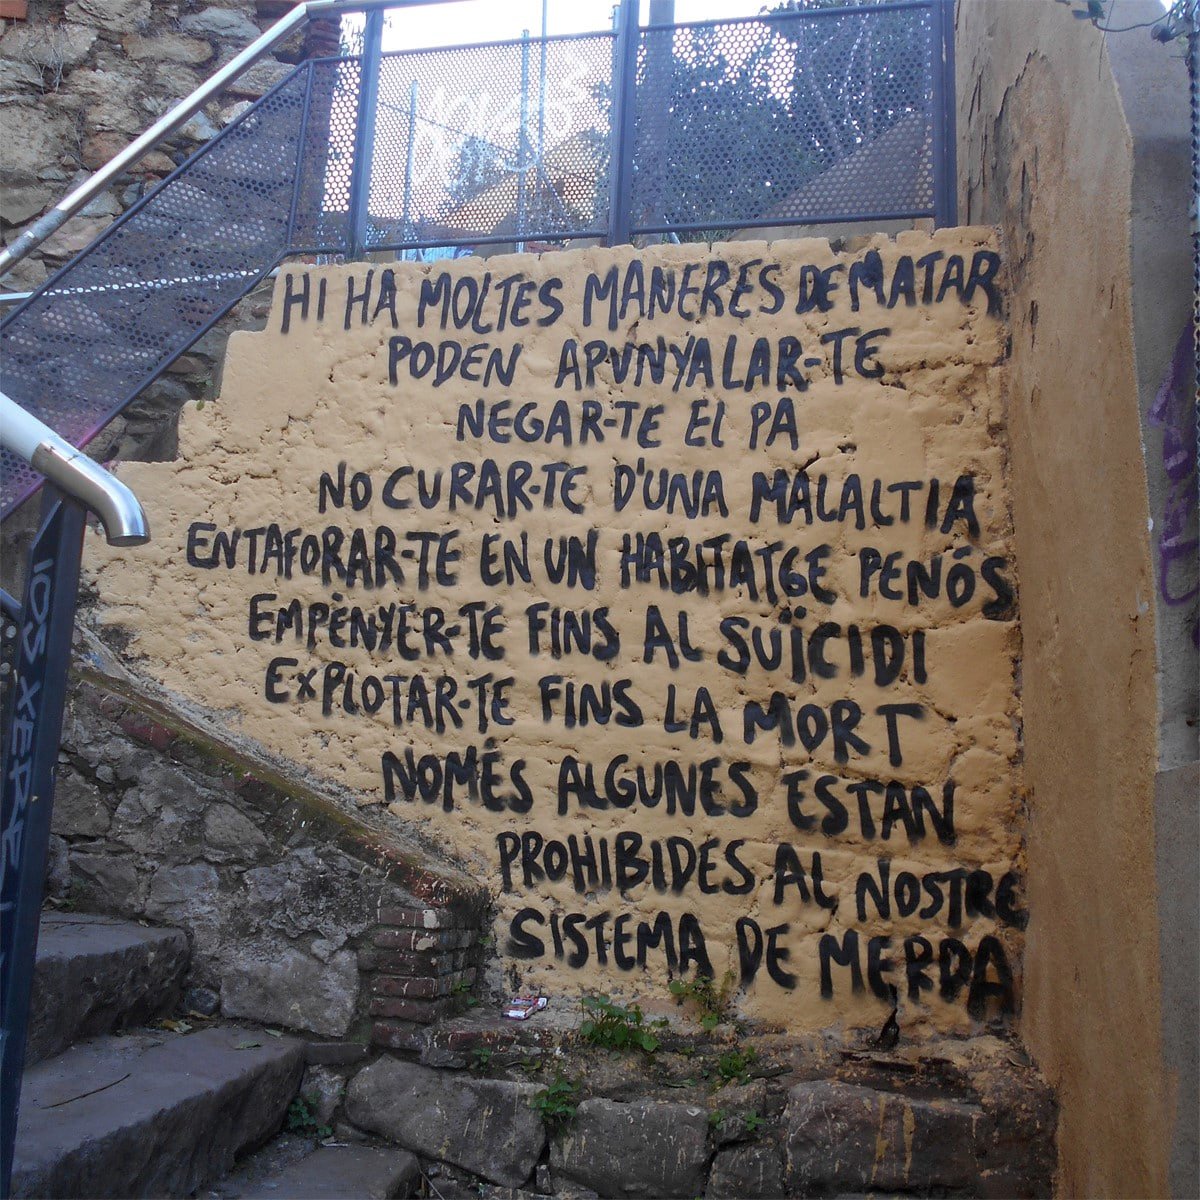 HI HA MOLTES MANERES DE MATAR
PODEN APUNYALAR-TE
NEGAR-TE EL PA
NO CURAR-TE D'UNA MALALTIA
ENTAFORAR-TE EN UN HABITATGE PENÓS
EMPÈNYER-TE FINS AL SUÏCIDI
EXPLOTAR-TE FINS LA MORT
NOMÉS ALGUNES ESTAN
PROHIBIDES AL NOSTRE
SISTEMA DE MERDA